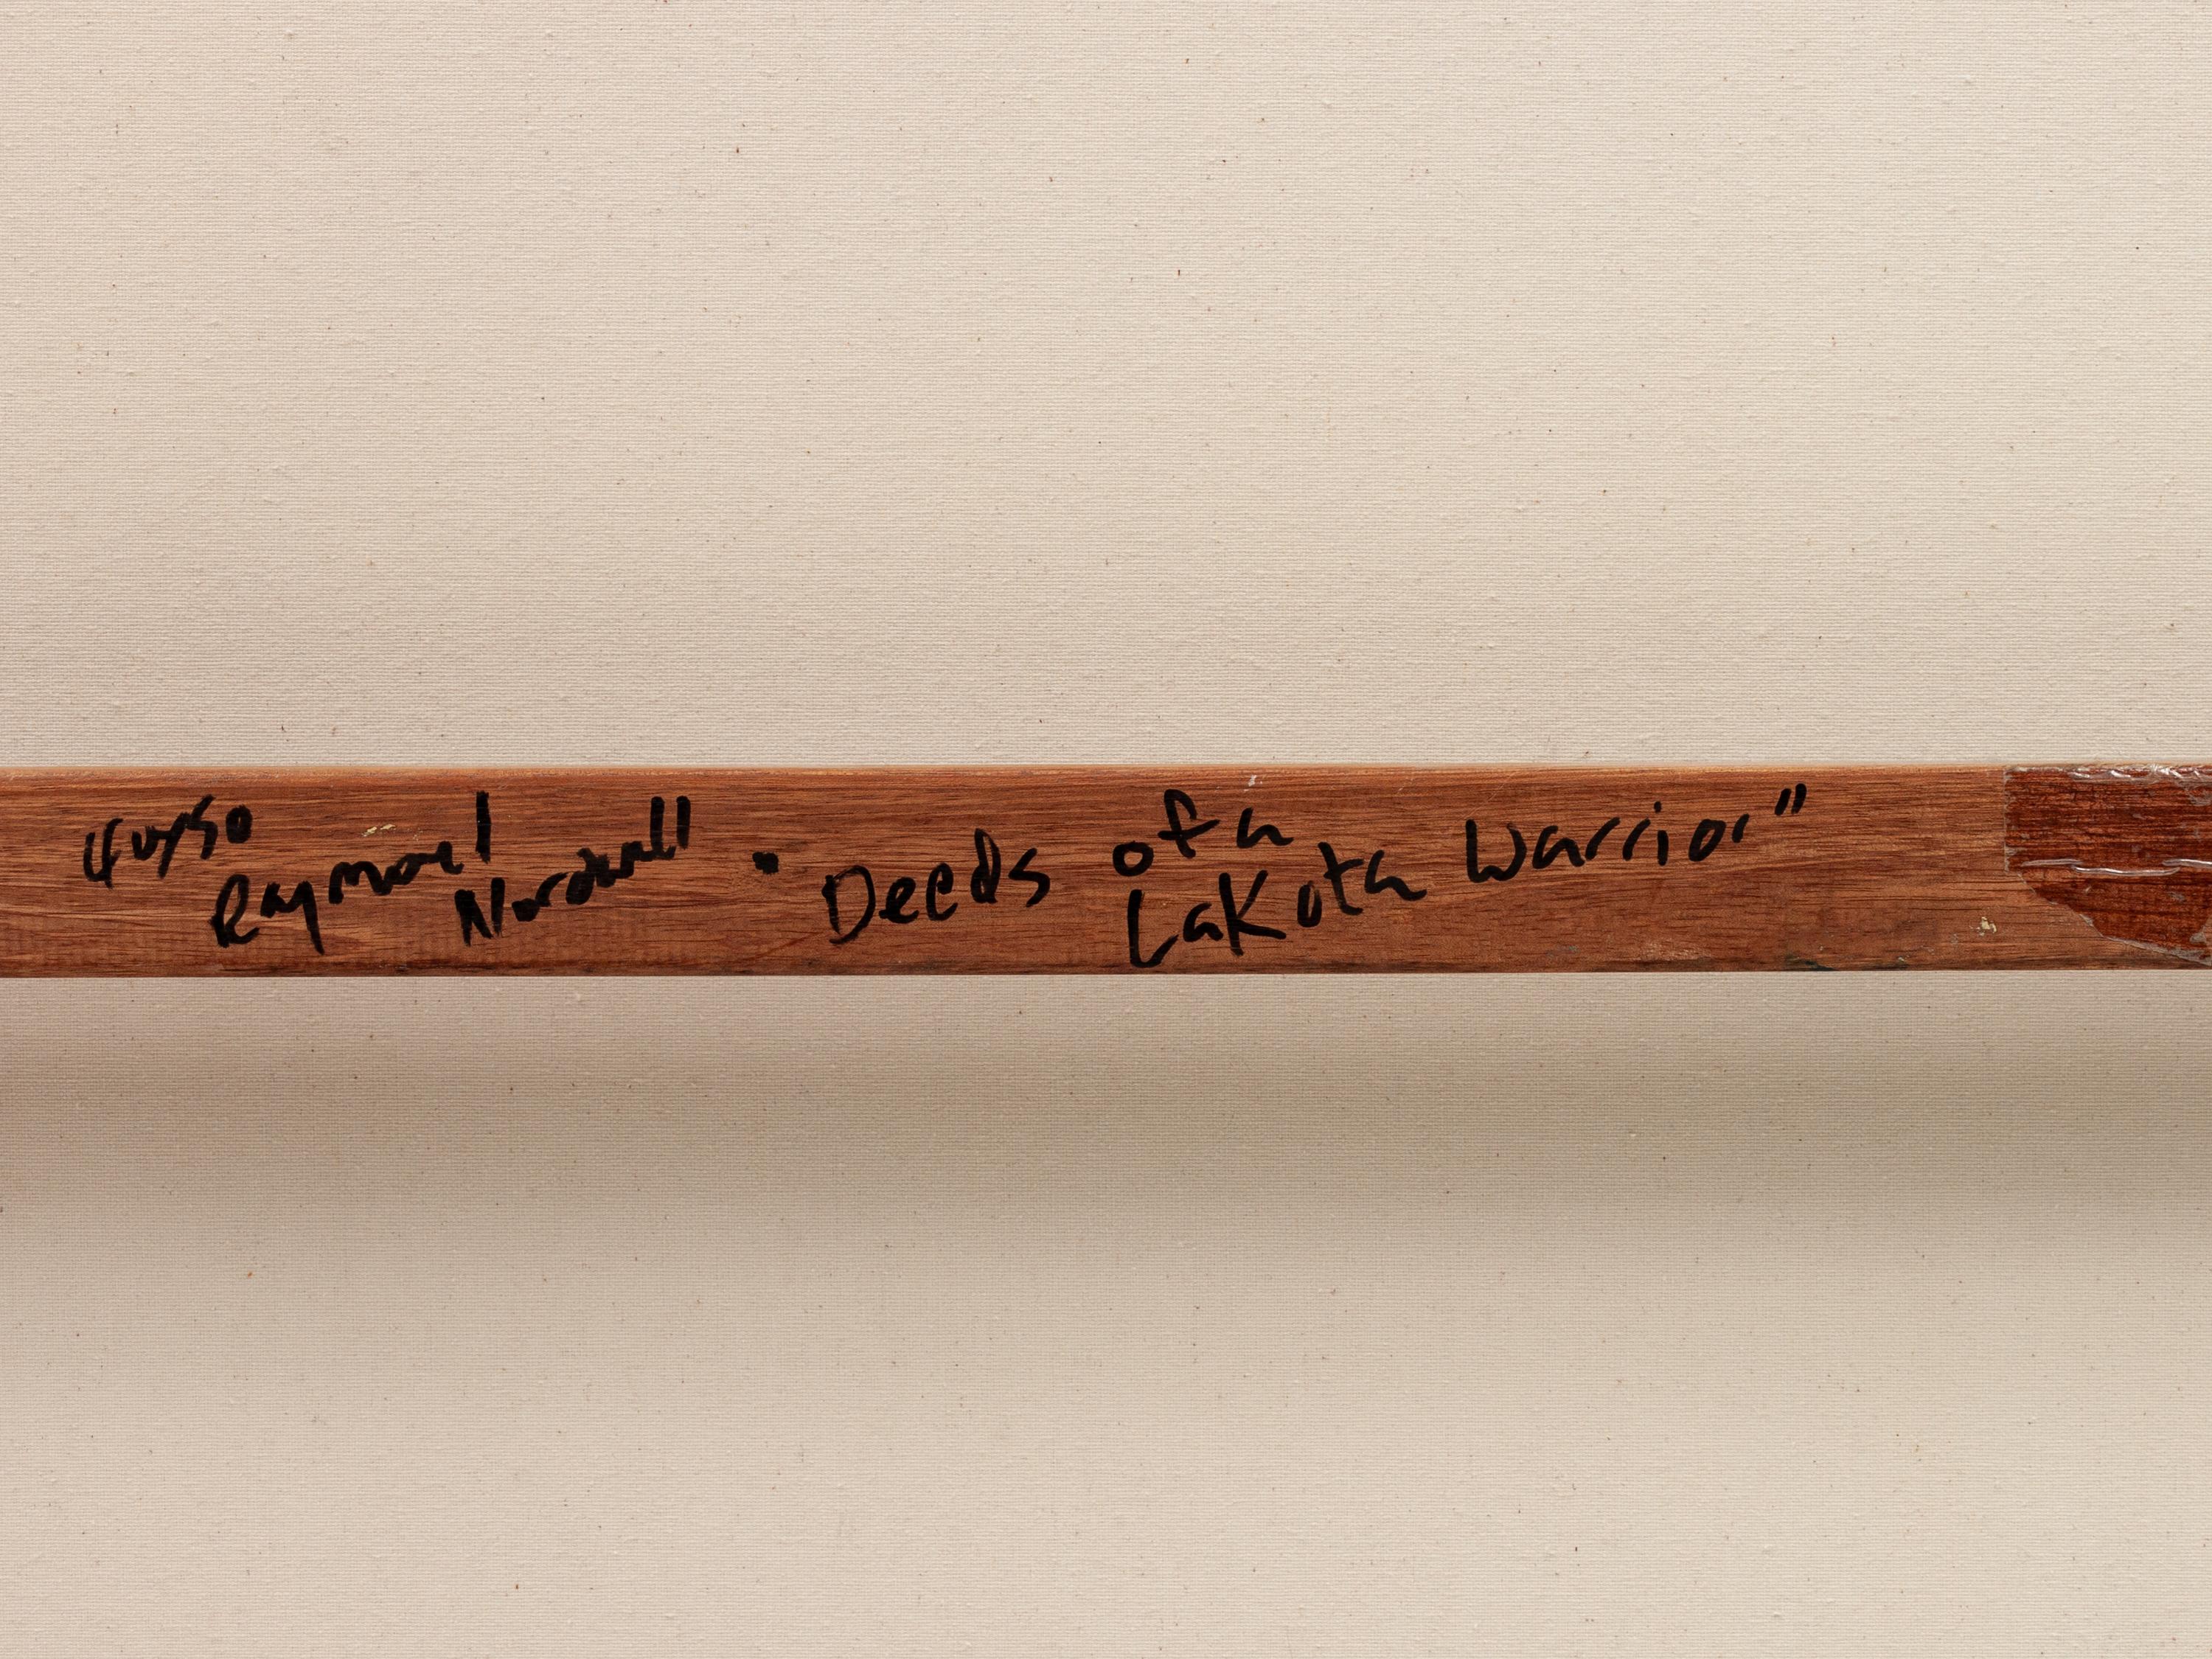 Raymond
Nordwall
" Deeds of a
Lakota Warrior"